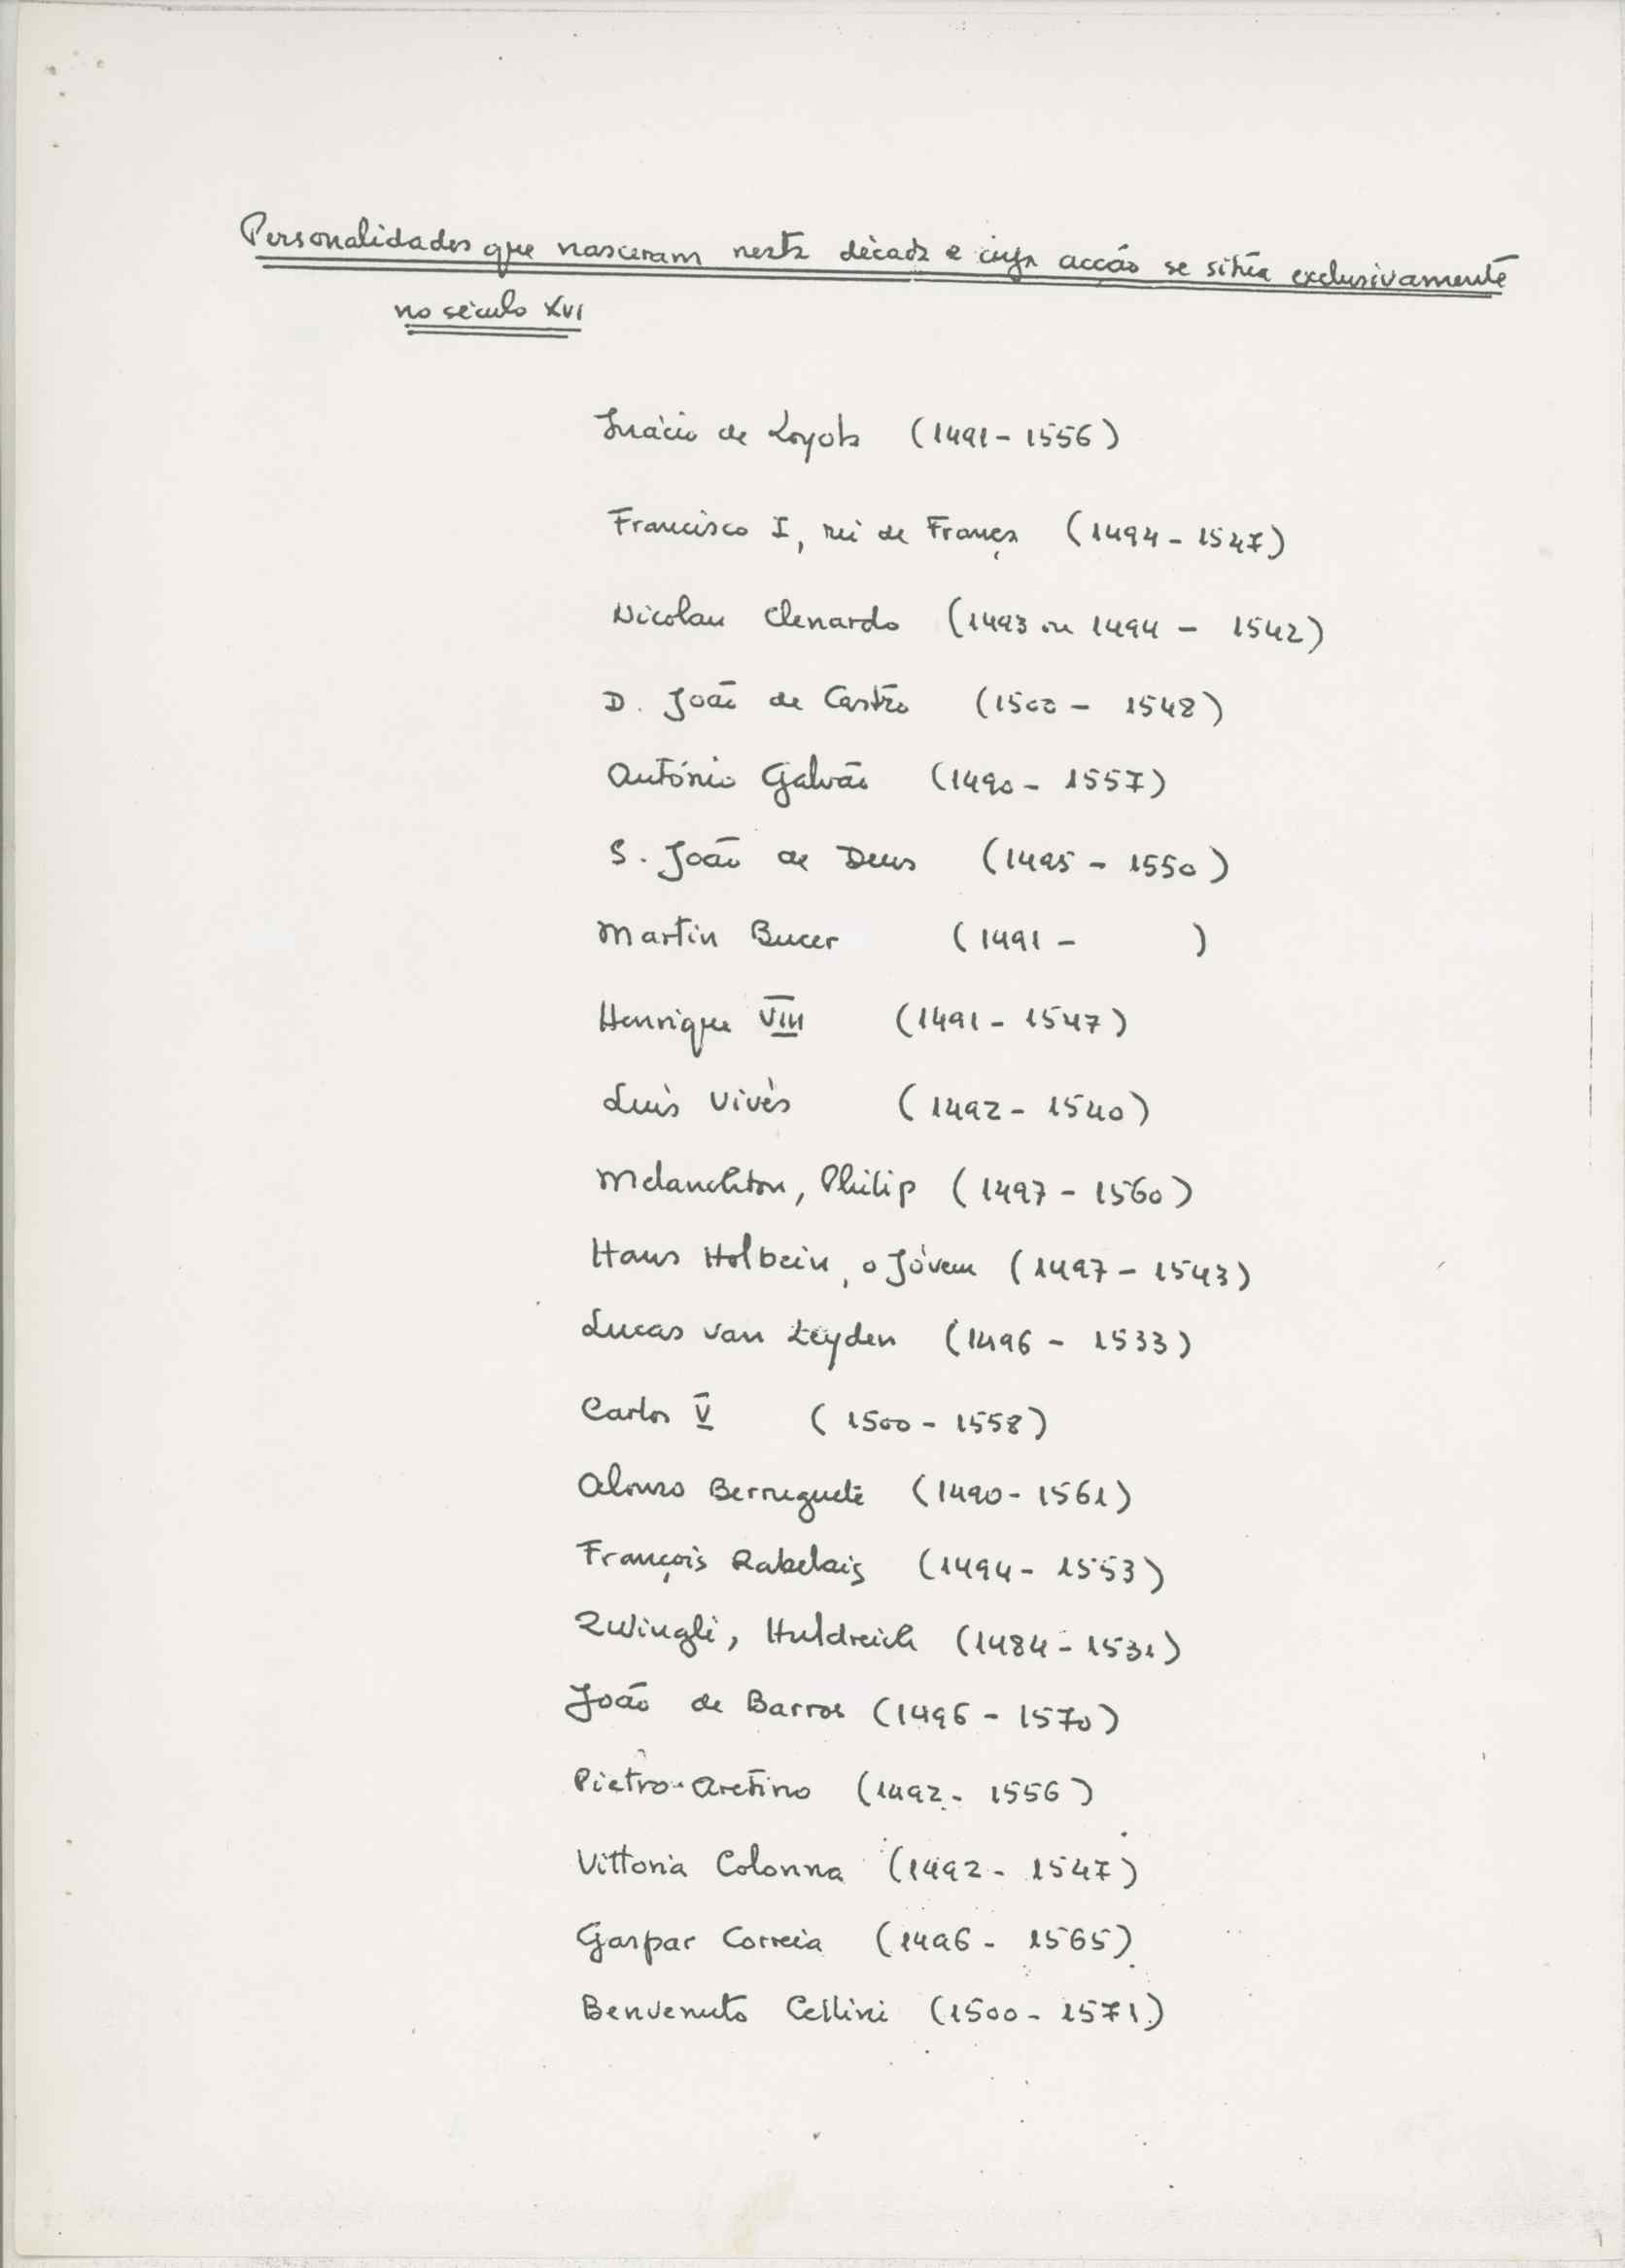 Personalidades que nasceram nesta década e cuja acção se situa exclusivamente
no século XVI
Inácio de Loyola (1491 - 1556)
Francisco I, rei de França (1494 - 1547)
Nicolau Clenardo (1493 ou 1494 - 1542)
D. João de Castro (1500 - 1548)
António Galvão (1490 - 1557)
S. João de Deus (1495 - 1550)
Martin Bucer (1491 - )
Henrique VIII (1491 - 1547)
Luís Vivès (1492 - 1540)
Melanchton, Philip (1497 - 1560)
Hans Holbein, o Jóvem (1497 - 1543)
Lucas van Leyden (1496 - 1533)
Carlos V (1500 - 1558)
Alonso Berruguete (1490 - 1561)
François Rabelais (1494 - 1553)
Zwingli, Huldreich (1484 - 1531)
João de Barros (1496 - 1570)
Pietro Aretino (1492 - 1556)
Vittoria Colonna (1492 - 1547)
Gaspar Correia (1496 - 1565)
Benvenuto Cellini (1500 - 1571)